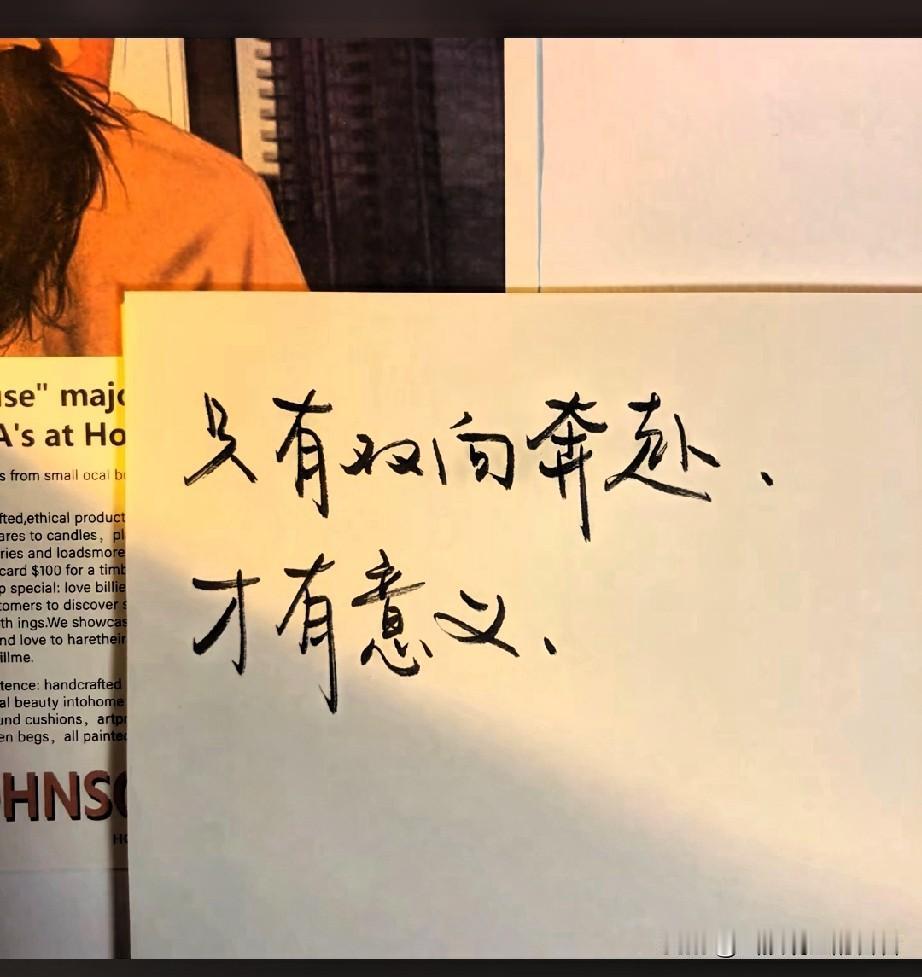 use" majo
A's at Ho
s from small ocal bu
fted,ethical product
ares to candles, pl
ries and loadsmore
card $100 for a timb
p special: love billie
tomers to discover s
th ings.We showcas
nd love to haretheir
illme.
tence: handcrafted
al beauty intohome
und cushions, artpr
en begs, all painted
OHNSO
HO
只有双向奔赴、
才有意义、